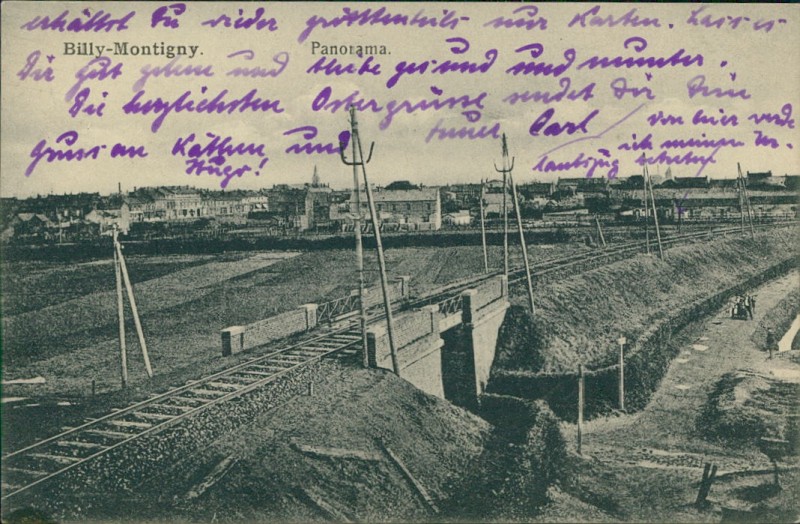 erhältst Du wieder grösstenteils nur Karten. Lass es
Billy-Montigny.
Panorama.
Dir gut gehen und bleibe gesund und munter.
Die herzlichsten Ostergrüsse sendet Dir Dein
Carl
Gruss an Käthen und
Hugo!
von hier werde
ich meinen Ur-
laubszug